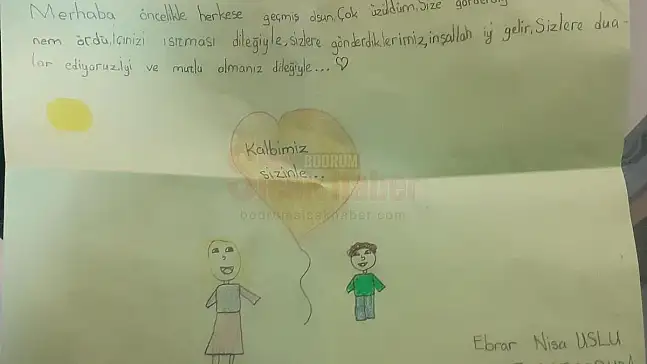 Merhaba öncelikle herkese geçmiş olsun. Çok üzüldüm. Size
nem ördü. İçinizi ısıtması dileğiyle, sizlere gönderdiklerimiz, inşallah iyi gelir. Sizlere dua-
lar ediyoruz. İyi ve mutlu olmanız dileğiyle... ♡
Kalbimiz
sizinle...
BODRUM
haber
bodrumsicakhaber.com
Ebrar Nisa USLU